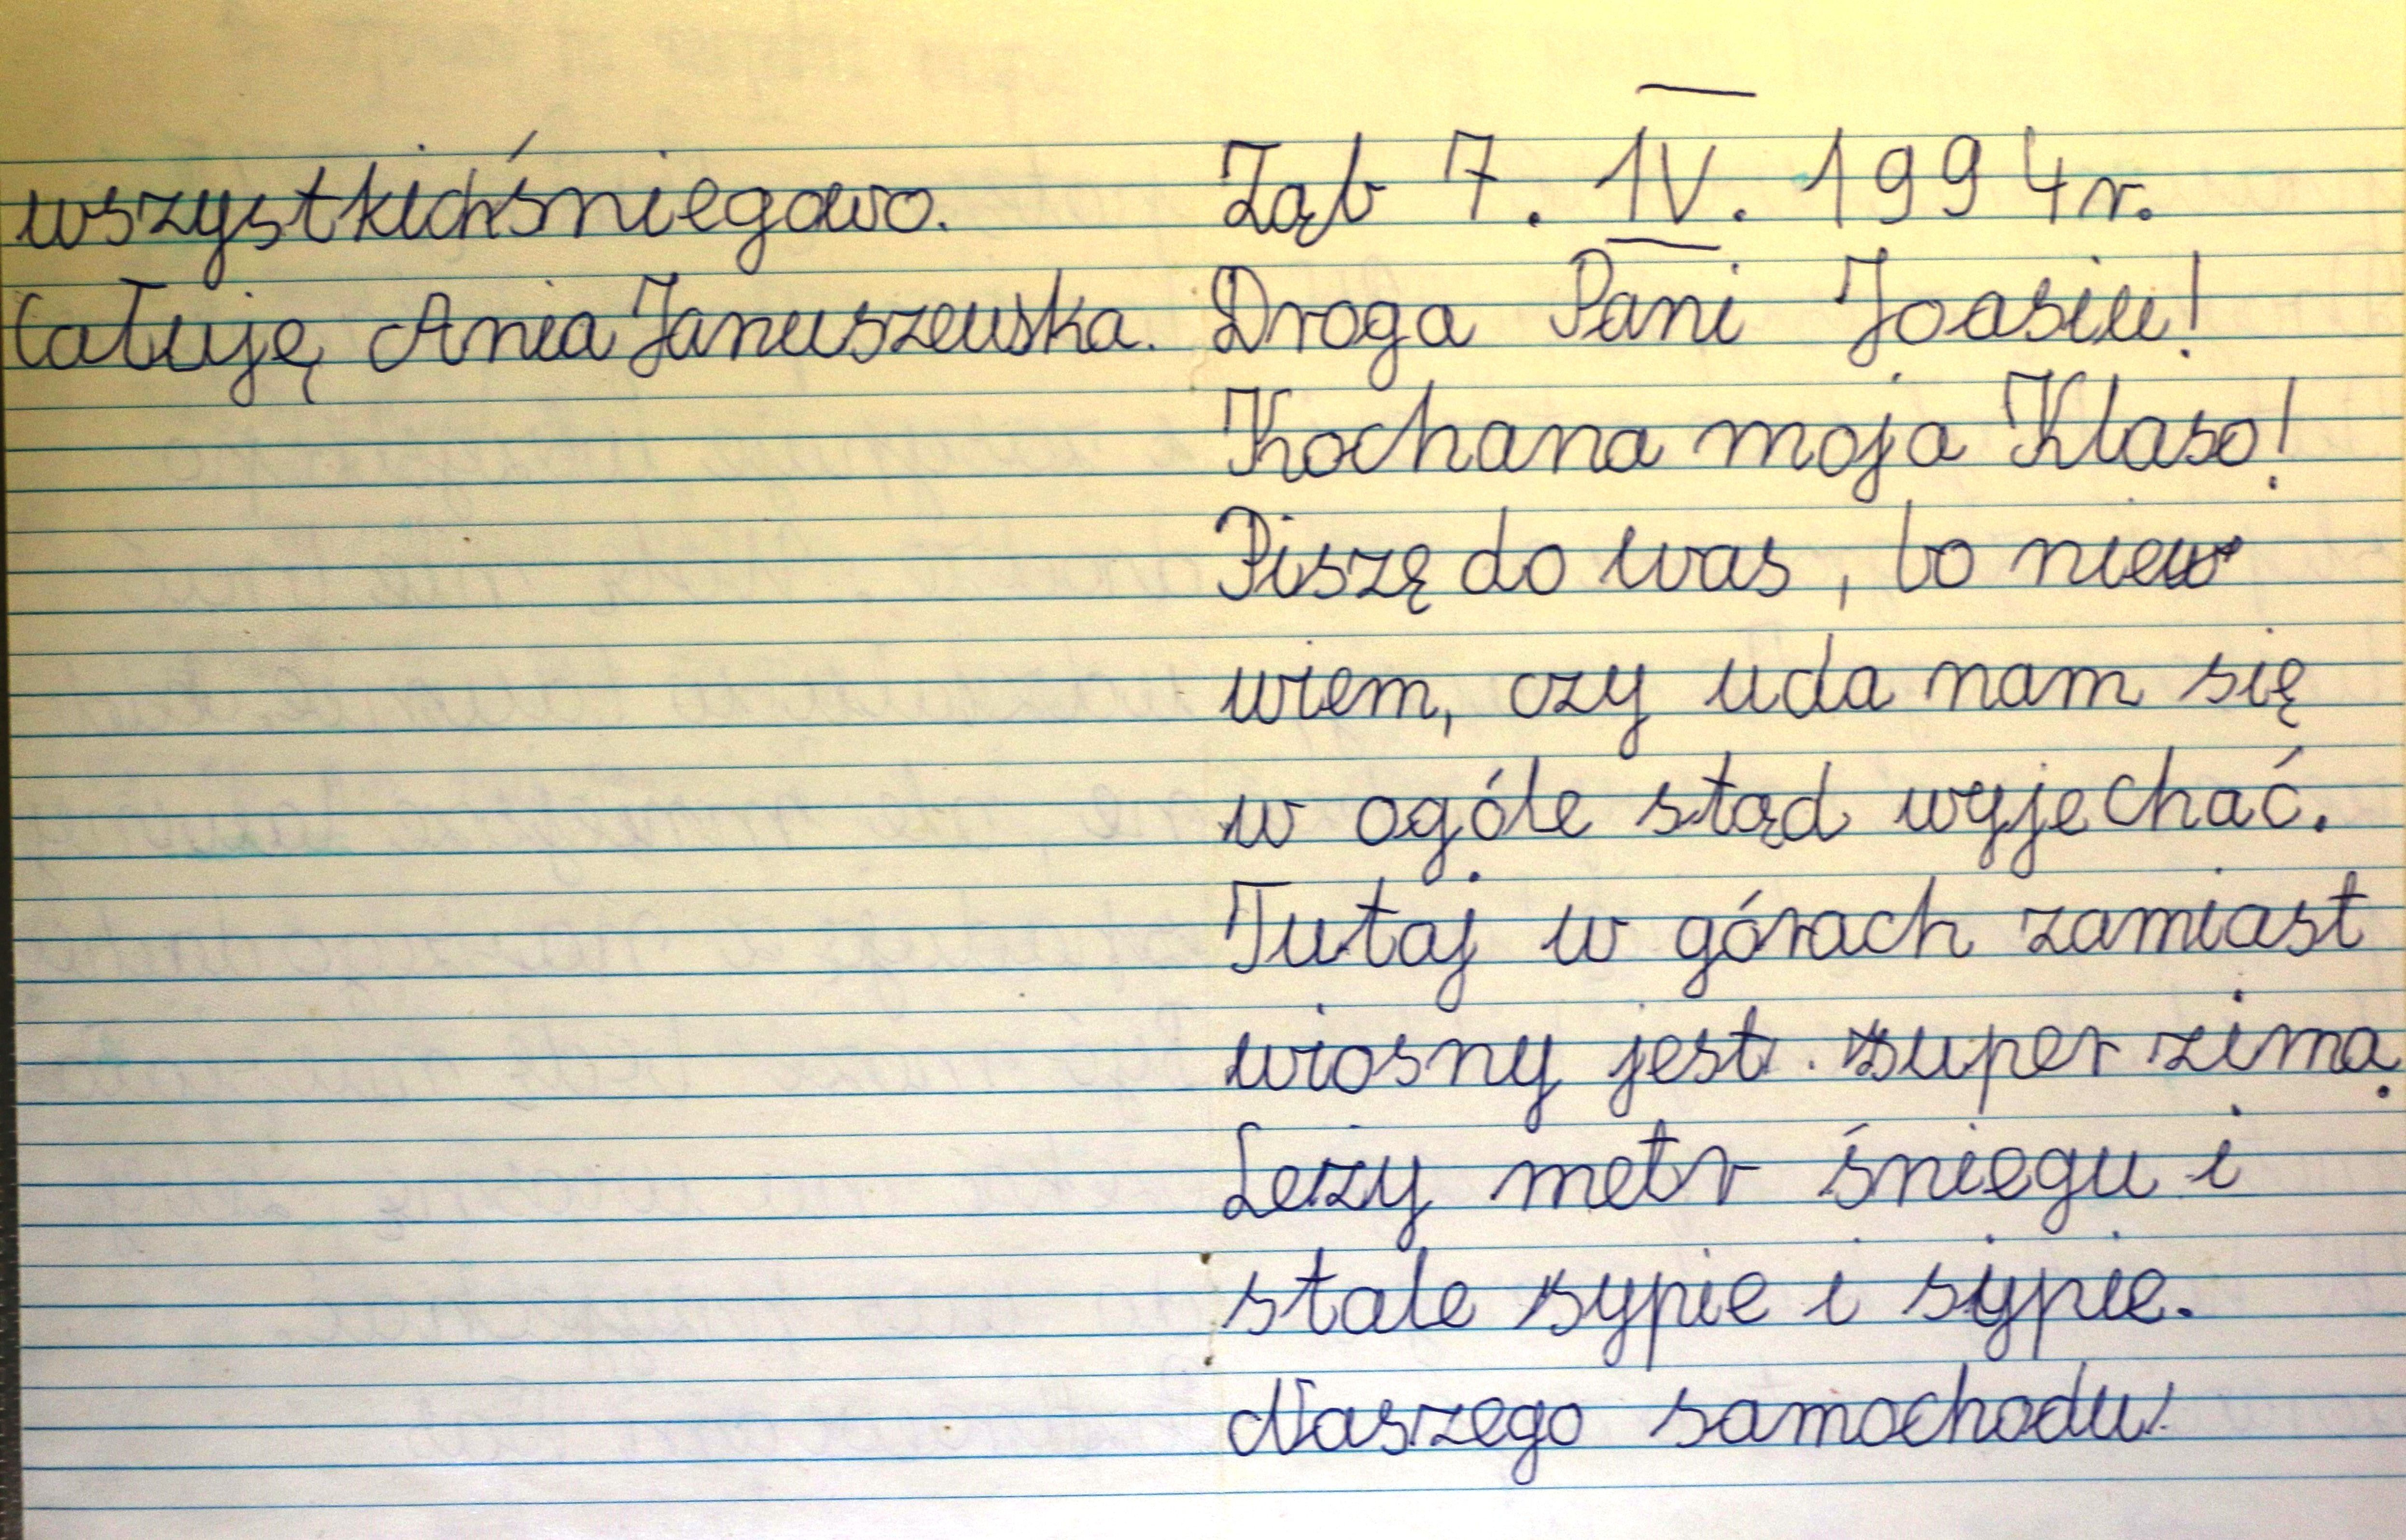 wszystkich śniegowo.
Całuję Ania Januszewska.
Ząb 7. IV. 1994 r.
Droga Pani Joasiu!
Kochana moja Klaso!
Piszę do was, bo nie
wiem, czy uda nam się
w ogóle stąd wyjechać.
Tutaj w górach zamiast
wiosny jest super zima.
Leży metr śniegu i
stale sypie i sypie.
Naszego samochodu